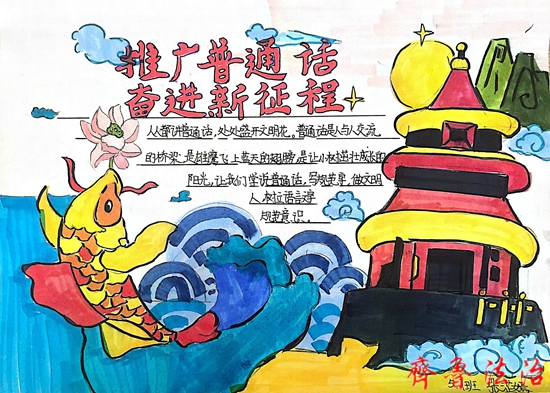 推广普通话
奋进新征程
人人争讲普通话,处处盛开文明花。普通话是人与人交流
的桥梁,是雄鹰飞上蓝天的翅膀,是让小树茁壮成长的
阳光,让我们学说普通话,写规范字,做文明
人,树立语言文字
规范意识。
班
齐鲁法治